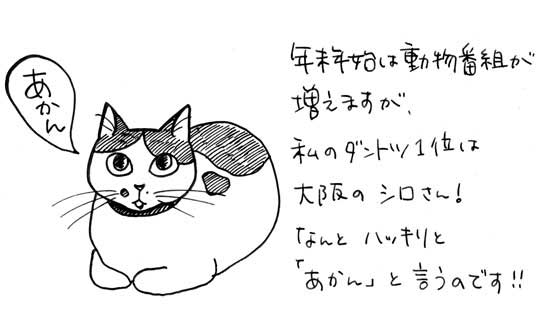 あかん
年末年始は動物番組が
増えますが、
私のダントツ1位は
大阪の シロさん!
なんと ハッキリと
「あかん」と言うのです!!